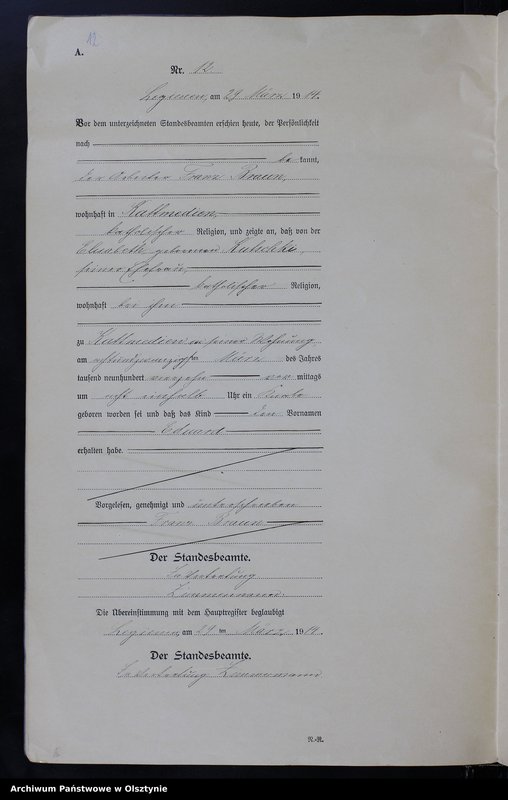 12
A.
Nr. 12
Legienen, am 29. März 1914.
Vor dem unterzeichneten Standesbeamten erschien heute, der Persönlichkeit
nach
be kannt,
der Arbeiter Franz Braun,
wohnhaft in Kattmedien,
katholischer Religion, und zeigte an, daß von der
Elisabeth geborenen
seiner Ehefrau,
katholischer Religion,
wohnhaft bei ihm
zu Kattmedien in seiner Wohnung
am achtundzwanzigsten März des Jahres
tausend neunhundert vierzehn vor mittags
um acht einhalb Uhr ein Knabe
geboren worden sei und daß das Kind den Vornamen
Eduard
erhalten habe.
Vorgelesen, genehmigt und unterschrieben
Franz Braun
Der Standesbeamte.
In Vertretung
Zimmermann.
Die Übereinstimmung mit dem Hauptregister beglaubigt
Legienen, am 29 ten März 1914.
Der Standesbeamte.
In Vertretung Zimmermann
N.-R.
Archiwum Państwowe w Olsztynie